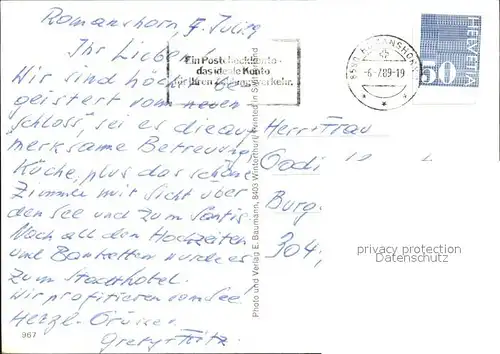 Romanshorn, 7. Juli 89
Ihr Lieben
Wir sind höchst be-
geistert vom neuen
"Schloss", sei es die auf-
merksame Betreuung,
Küche, plus das schöne
Zimmer mit Sicht über
den See und zum Säntis.
Nach all den Hochzeiten
und Banketten wurde es
zum Stadthotel.
Wir profitieren vom See!
Herzl. Grüsse
Grety + Fritz
967
Ein Postcheckkonto -
das ideale Konto
für Ihren Zahlungsverkehr.
8590 ROMANSHORN
-6-7.89-19
HELVETIA
50
Photo und Verlag E. Baumann, 8403 Winterthur / Printed in Switzerland
Herr + Frau
Burg
304,
privacy protection
Datenschutz